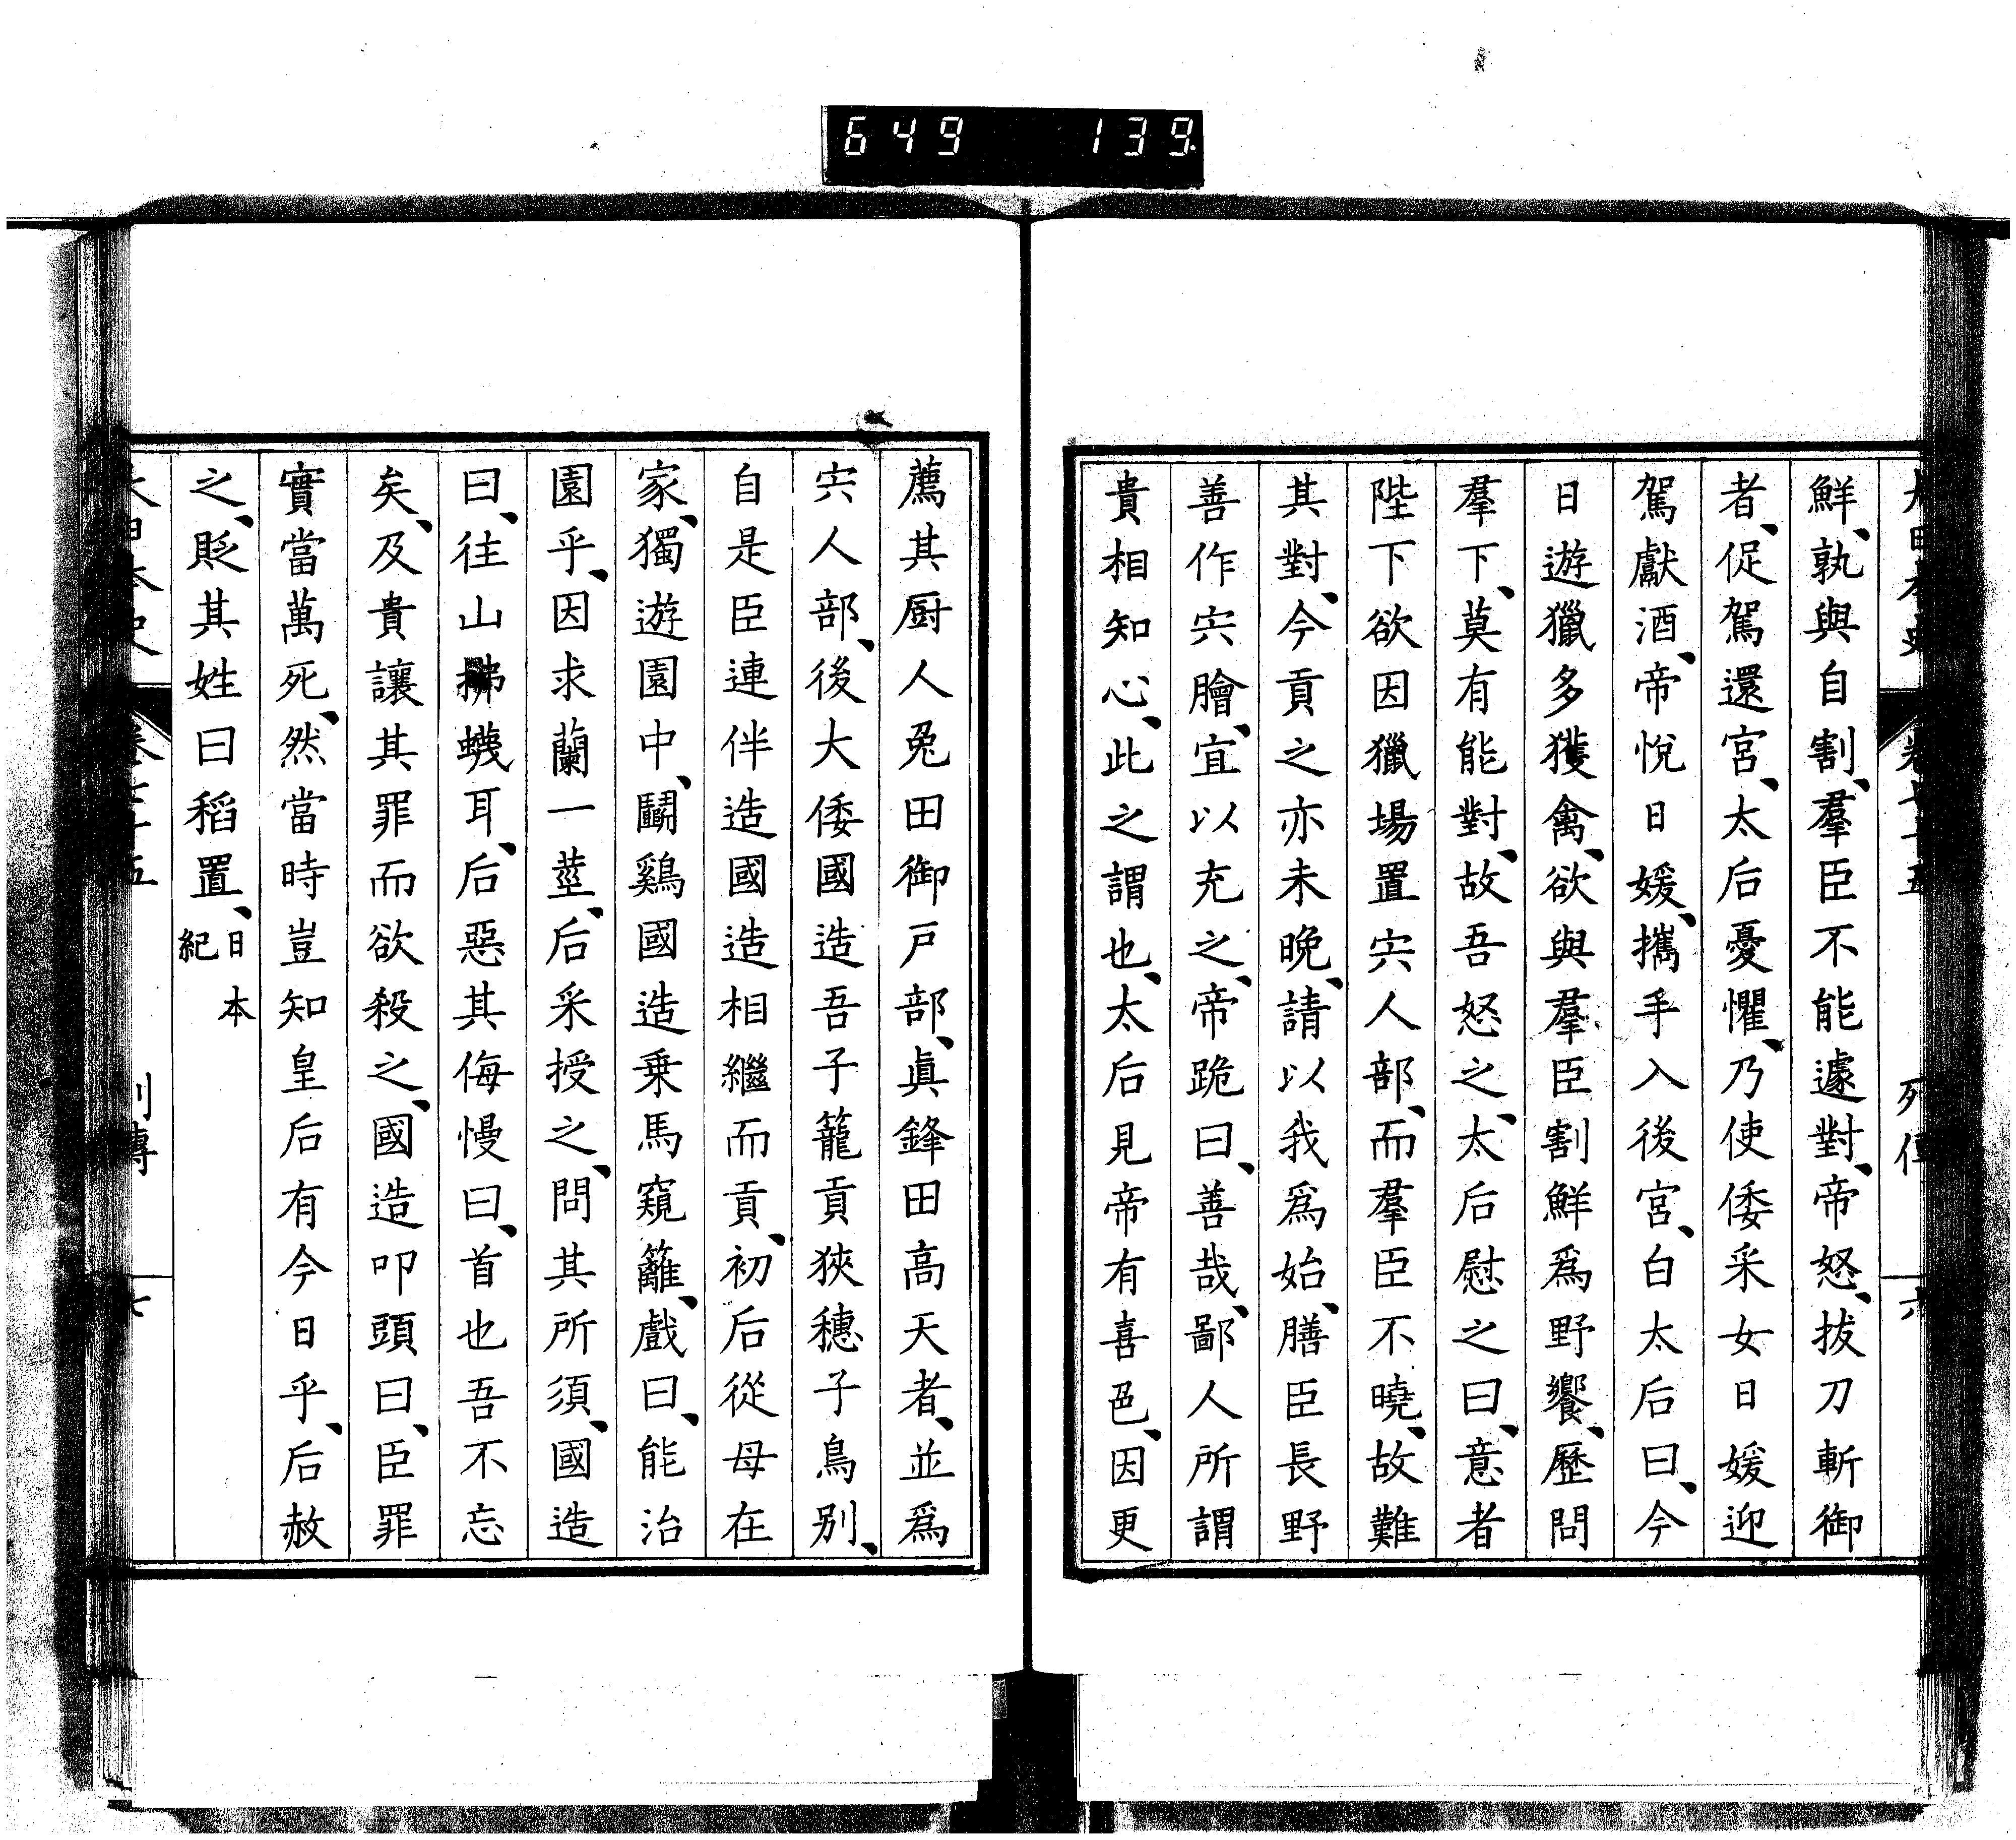 649 139
大日本史 卷七十五 列傳 六
鮮、孰與自割、羣臣不能遽對、帝怒、拔刀斬御
者、促駕還宮、太后憂懼、乃使倭采女日媛迎
駕獻酒、帝悅日媛、攜手入後宮、白太后曰、今
日遊獵多獲禽、欲與羣臣割鮮爲野饗、歷問
羣下、莫有能對、故吾怒之、太后慰之曰、意者
陛下欲因獵場置宍人部、而羣臣不曉、故難
其對、今貢之亦未晚、請以我爲始、膳臣長野
善作宍膾、宜以充之、帝跪曰、善哉、鄙人所謂
貴相知心、此之謂也、太后見帝有喜色、因更
薦其厨人兔田御戸部、眞鋒田高天者、並爲
宍人部、後大倭國造吾子籠貢狹穗子鳥別、
自是臣連伴造國造相繼而貢、初后從母在
家、獨遊園中、鬭鷄國造乗馬窺籬、戲曰、能治
園乎、因求蘭一莖、后采授之、問其所須、國造
曰、往山拂蠛耳、后惡其侮慢曰、首也吾不忘
矣、及貴讓其罪而欲殺之、國造叩頭曰、臣罪
實當萬死、然當時豈知皇后有今日乎、后赦
之、貶其姓曰稻置、日本紀
大日本史 卷七十五 列傳 七